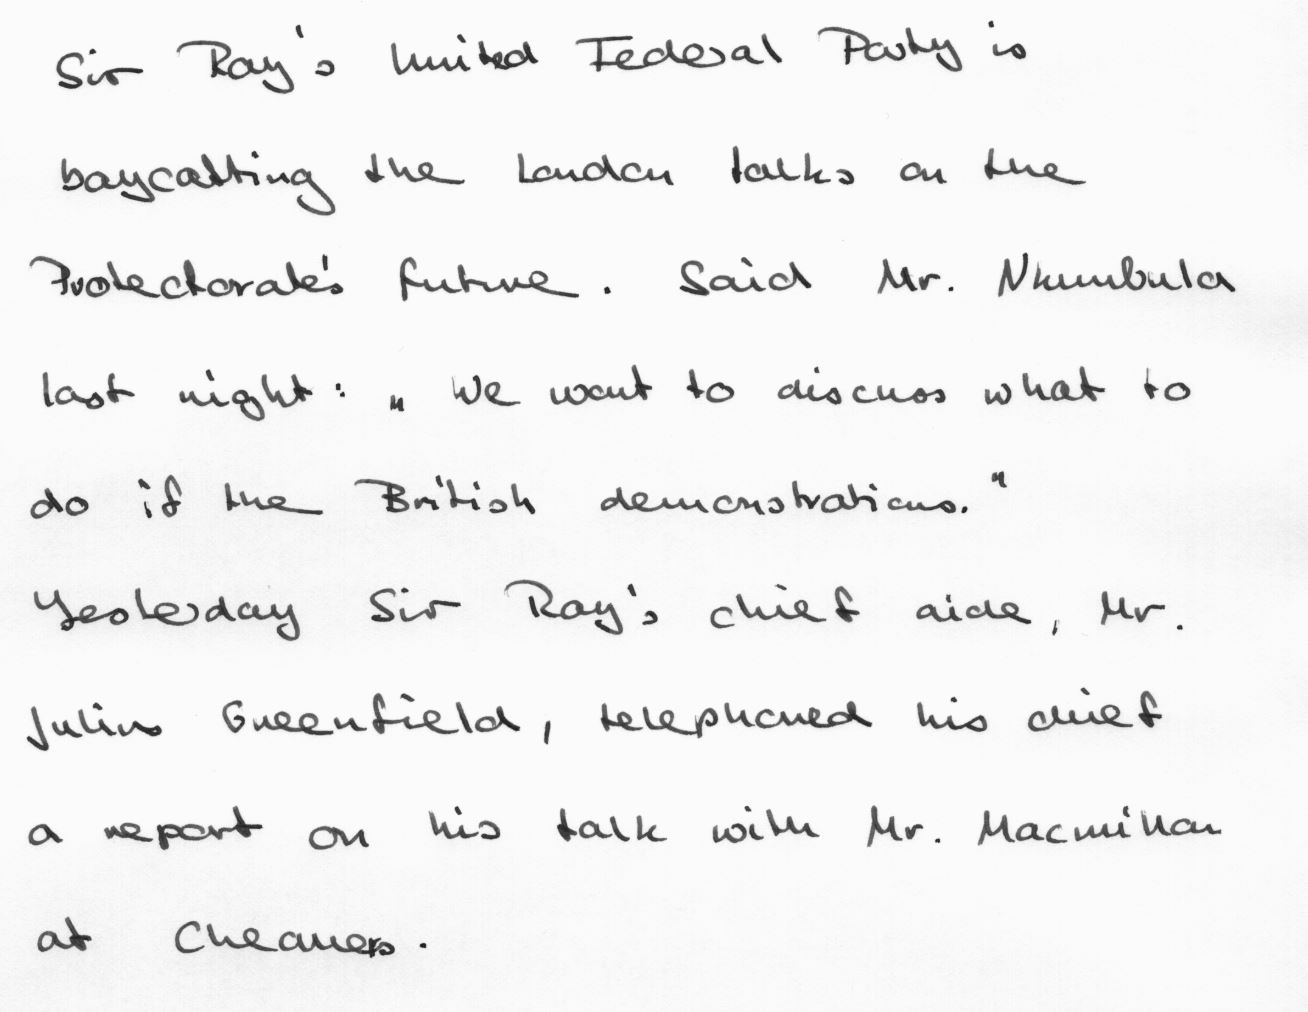 Sir Ray's United Federal Party is
boycotting the London talks on the
Protectorate's future. Said Mr. Nkumbula
last night: „We want to discuss what to
do if the British demonstrations."
Yesterday Sir Ray's chief aide, Mr.
Julius Greenfield, telephoned his chief
a report on his talk with Mr. Macmillan
at Chequers.